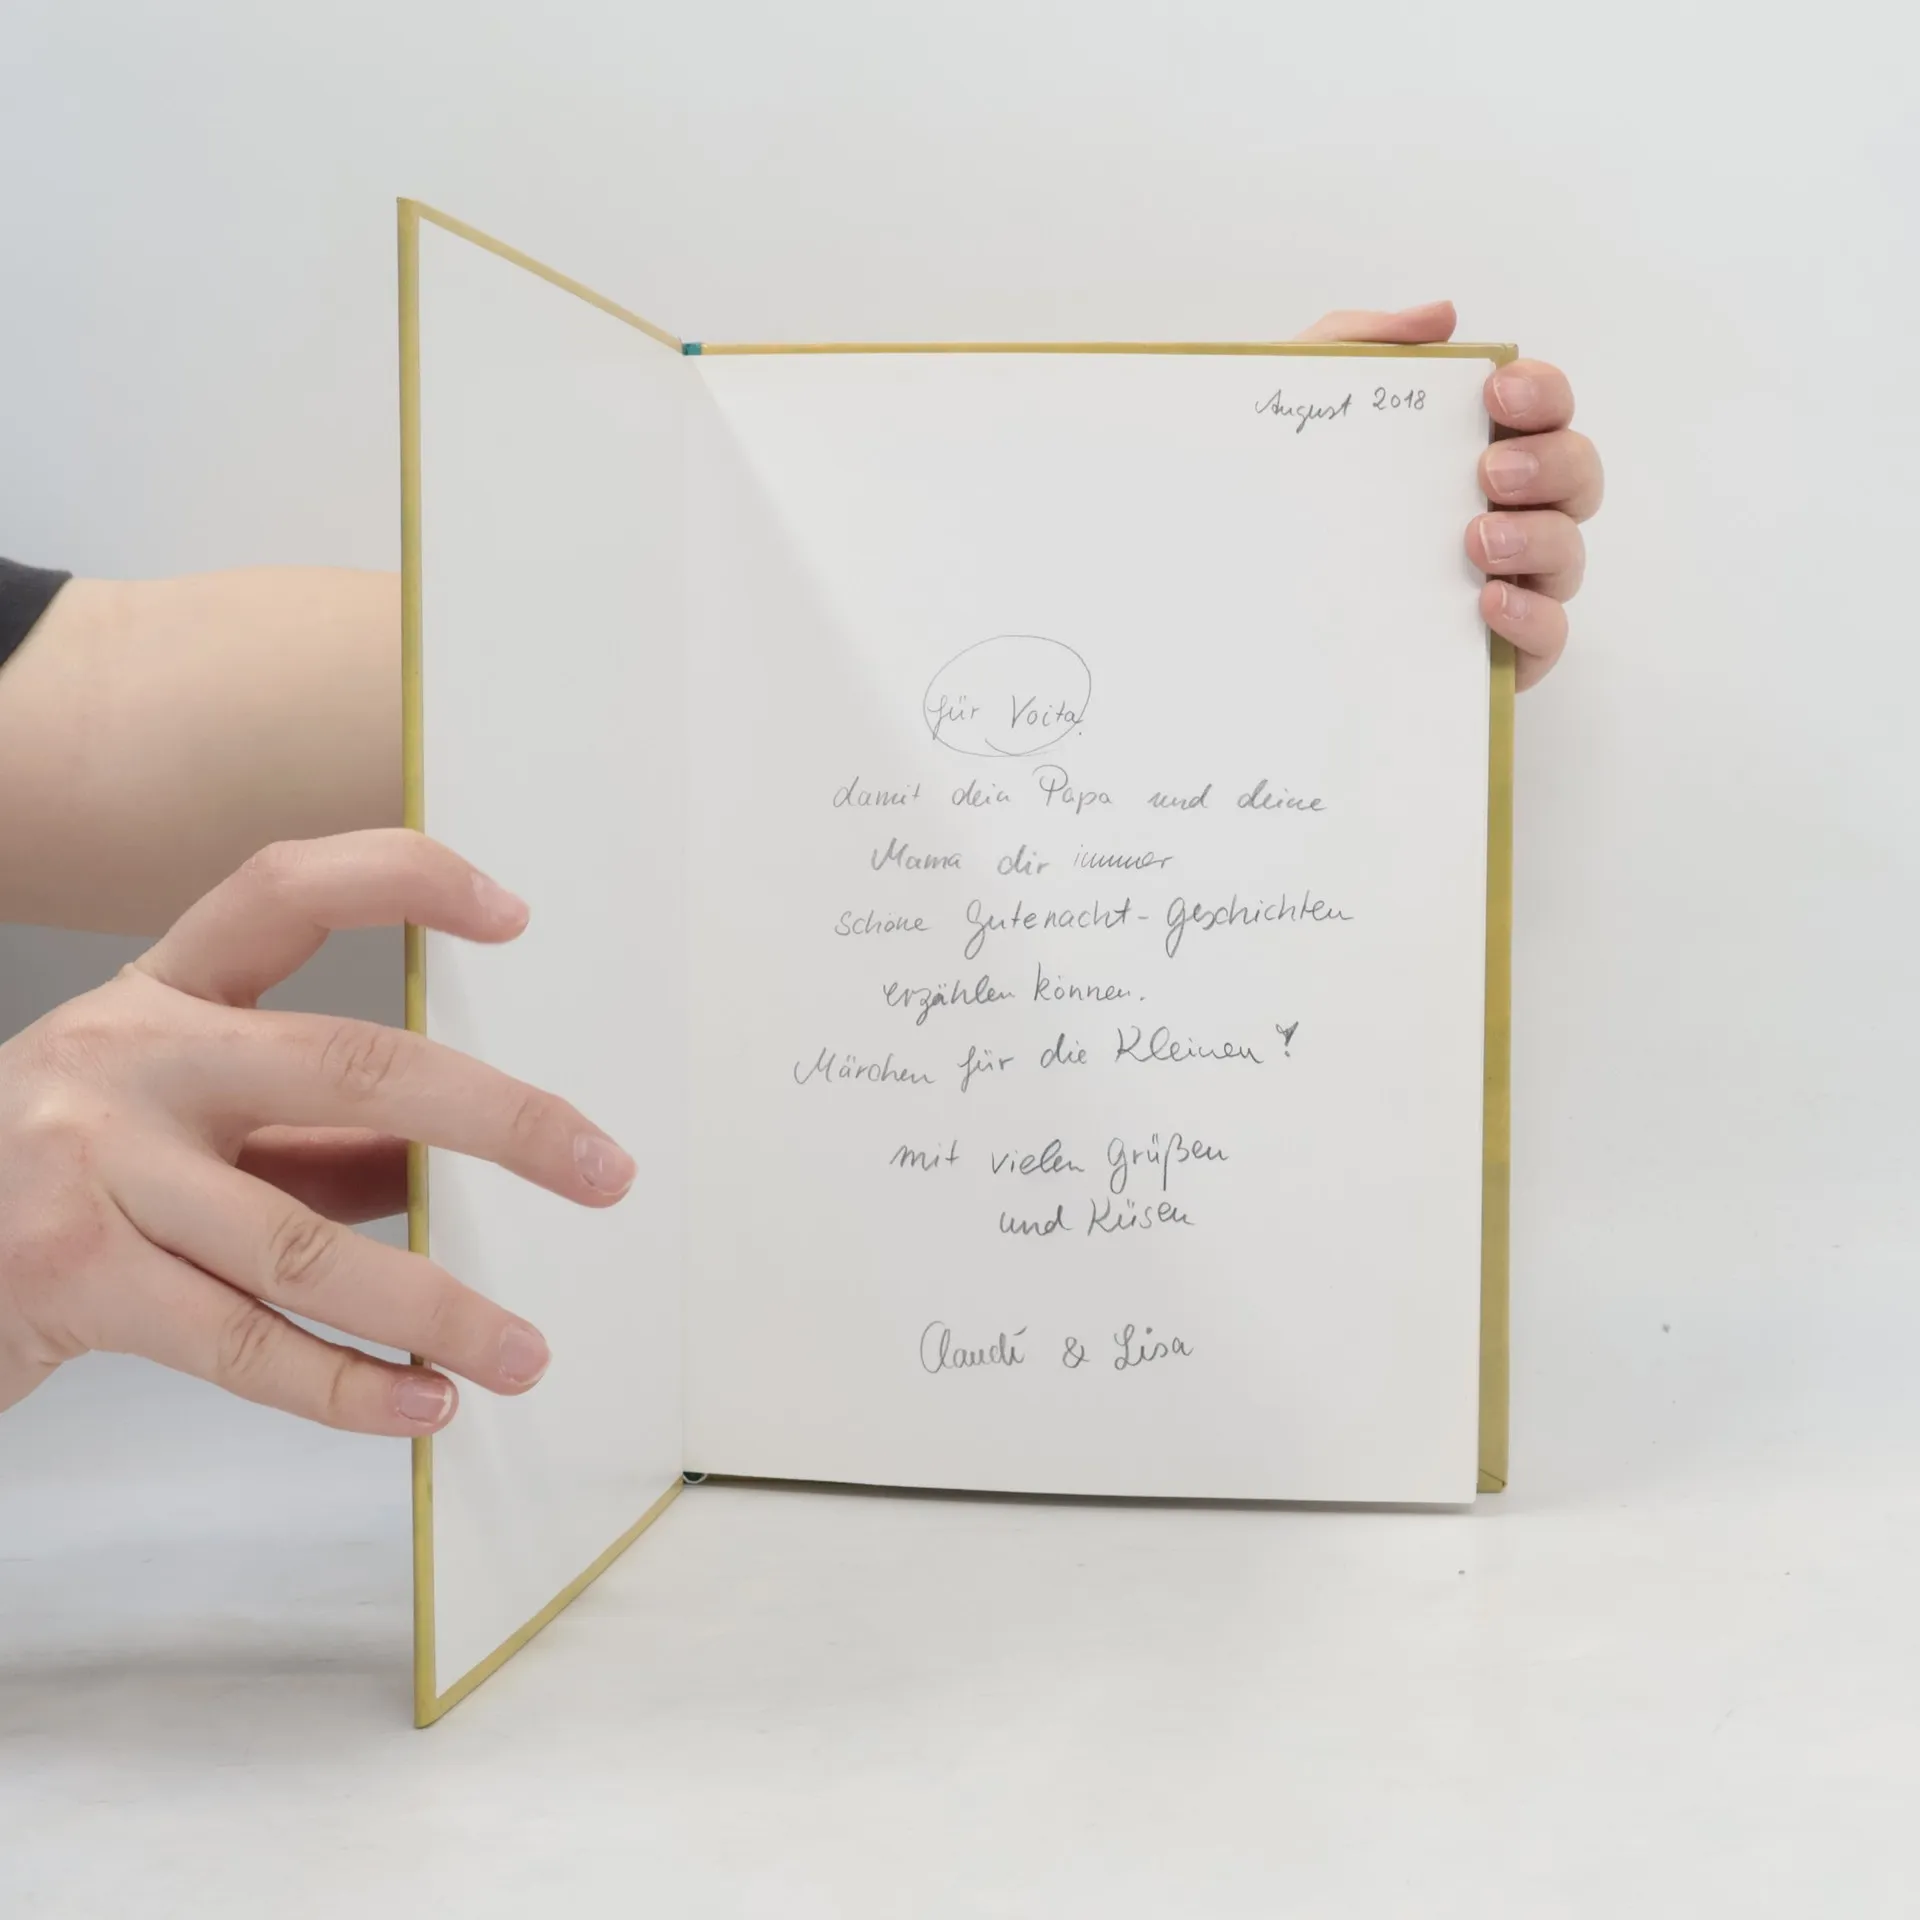 August 2018
für Voita.
damit dein Papa und deine
Mama dir immer
schöne Gutenacht-Geschichten
erzählen können.
Märchen für die Kleinen!
mit vielen Grüßen
und Küsen
Claudi & Lisa